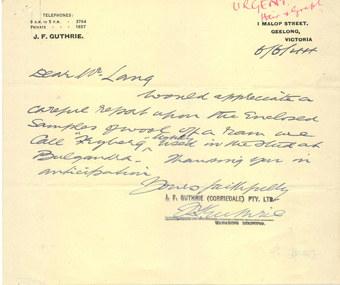 TELEPHONES:
9 A.M. TO 5 P.M. - 3764
PRIVATE - - - 1957
J. F. GUTHRIE.
URGENT.
1 MALOP STREET,
GEELONG,
VICTORIA
6/6/44
Dear Mr Lang
Would appreciate a
Careful report upon the Enclosed
Samples of wool off a Ram we
Call used in the Stud at
Bulgandra. Thanking you in
anticipation
Yours faithfully
J. F. GUTHRIE (CORRIEDALE) PTY. LTD.
J F Guthrie